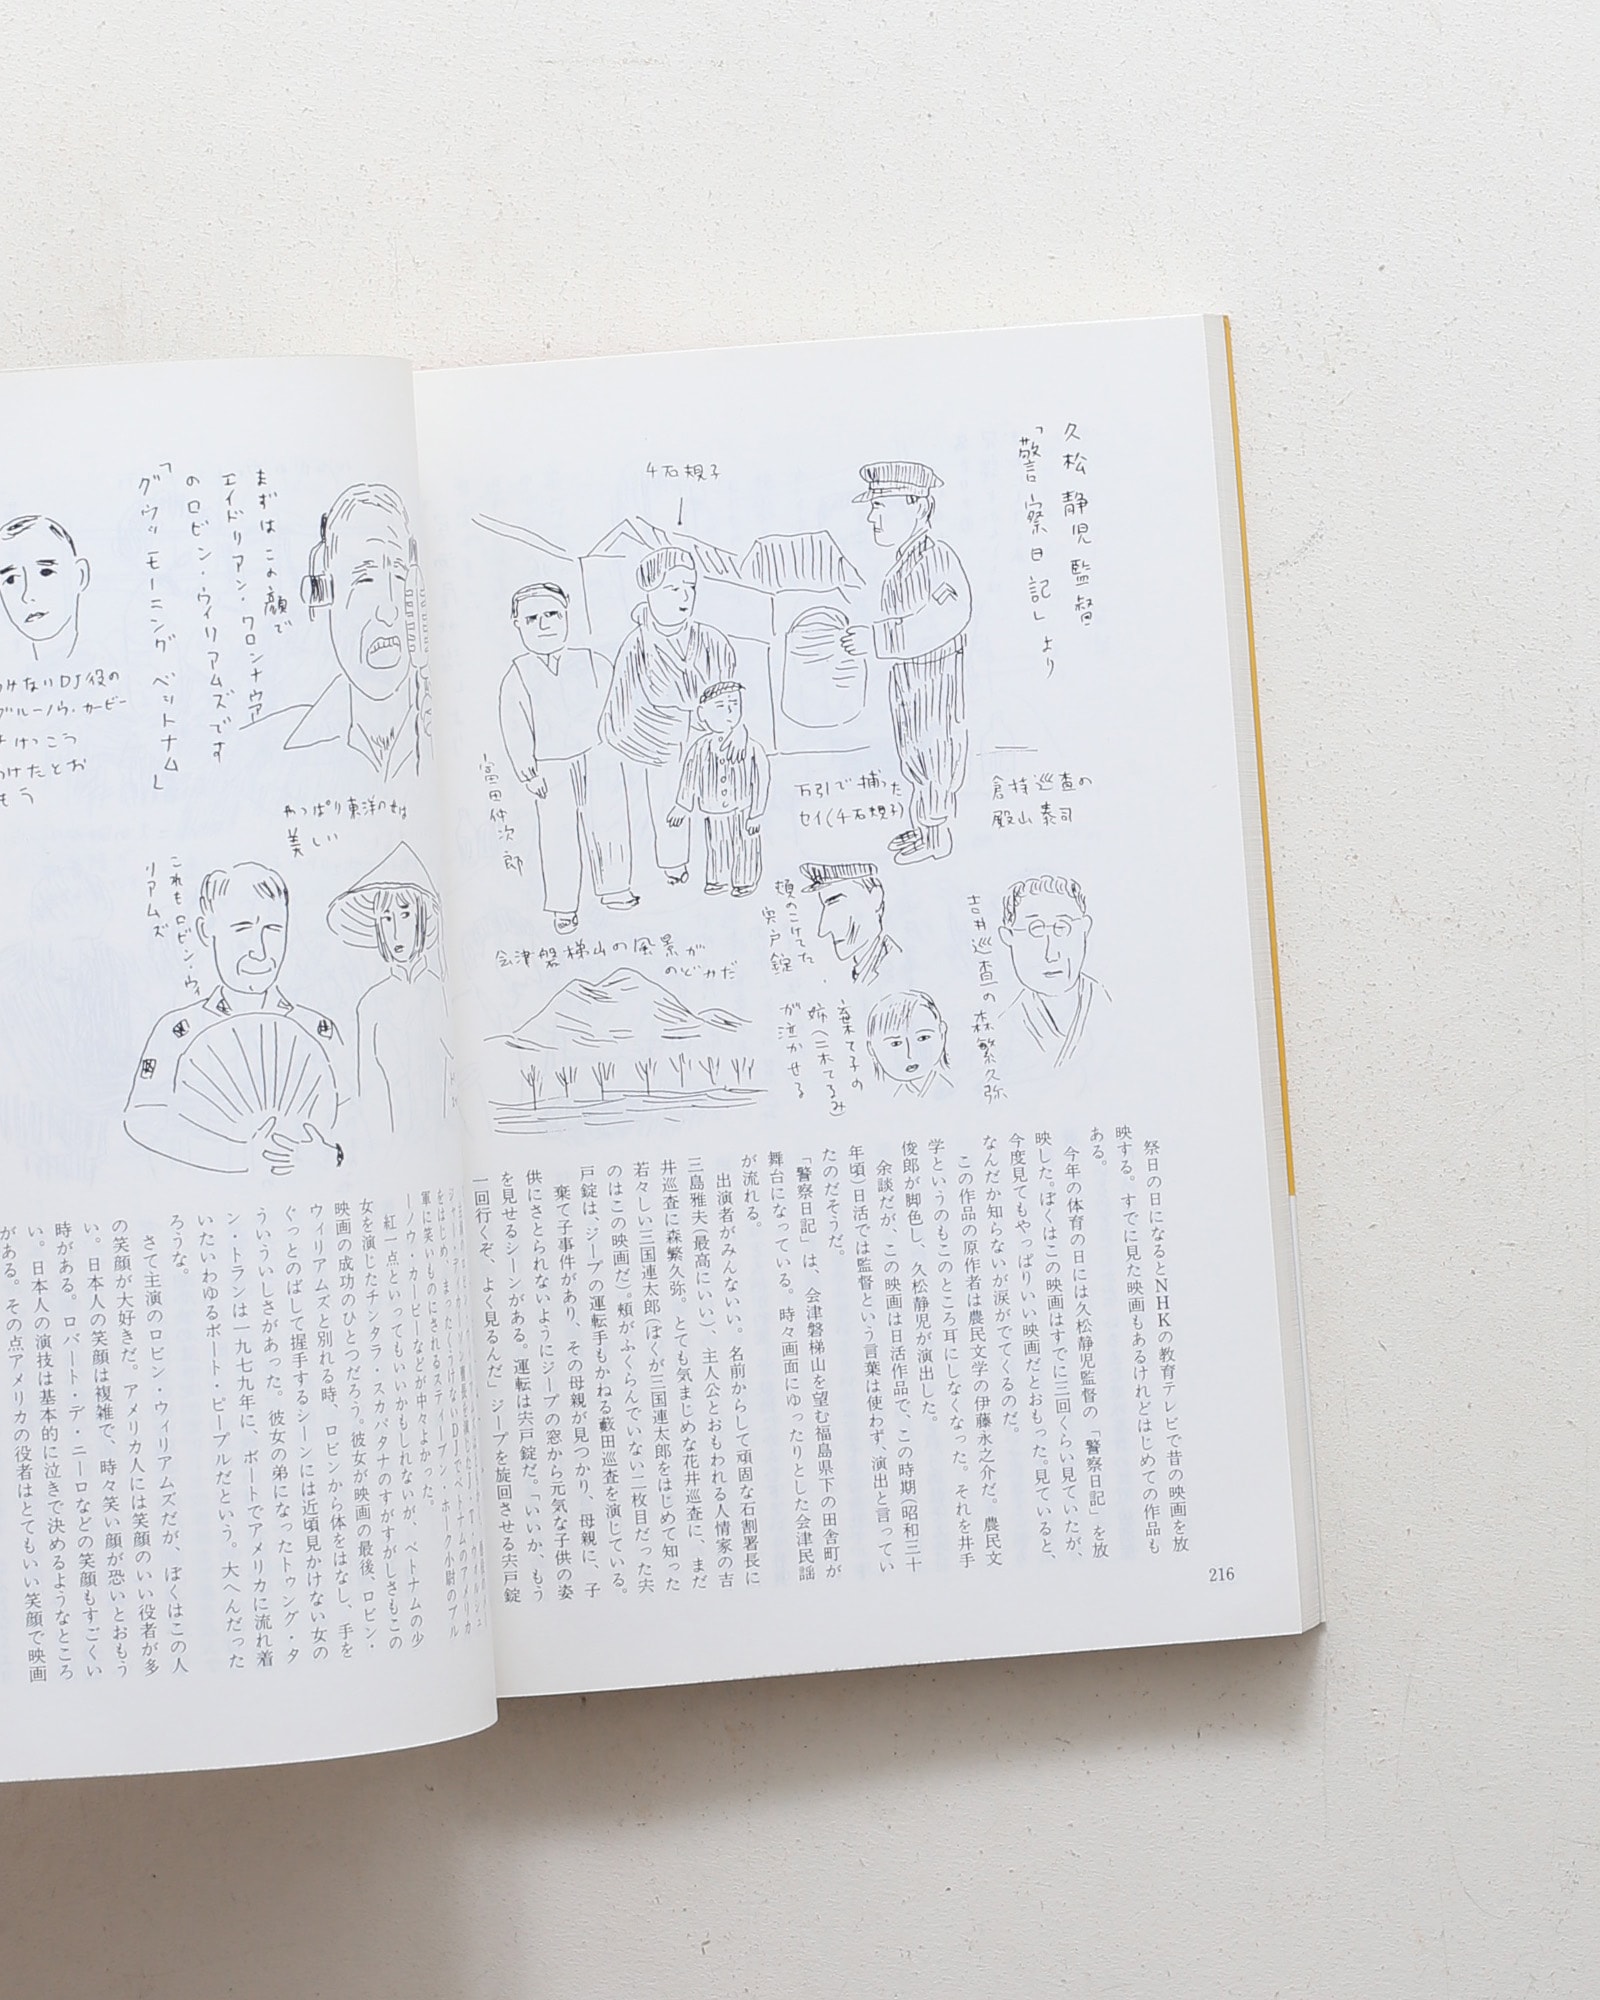 久松静児監督
「警察日記」より
千石規子
富田仲次郎
万引で捕った
セイ(千石規子)
倉持巡査の
殿山泰司
会津磐梯山の風景が
のどかだ
頬のこけてた
宍戸錠
吉井巡査の森繁久弥
棄て子の
姉(二木てるみ)
が泣かせる
祭日の日になるとNHKの教育テレビで昔の映画を放
映する。すでに見た映画もあるけれどはじめての作品も
ある。
今年の体育の日には久松静児監督の「警察日記」を放
映した。ぼくはこの映画はすでに三回くらい見ていたが、
今度見てもやっぱりいい映画だとおもった。見ていると、
なんだか知らないが涙がでてくるのだ。
この作品の原作者は農民文学の伊藤永之介だ。農民文
学というのもこのところ耳にしなくなった。それを井手
俊郎が脚色し、久松静児が演出した。
余談だが、この映画は日活作品で、この時期(昭和三十
年頃)日活では監督という言葉は使わず、演出と言ってい
たのだそうだ。
「警察日記」は、会津磐梯山を望む福島県下の田舎町が
舞台になっている。時々画面にゆったりとした会津民謡
が流れる。
出演者がみんないい。名前からして頑固な石割署長に
三島雅夫(最高にいい)、主人公とおもわれる人情家の吉
井巡査に森繁久弥。とても気まじめな花井巡査に、まだ
若々しい三国連太郎(ぼくが三国連太郎をはじめて知った
のはこの映画だ)。頬がふくらんでいない二枚目だった宍
戸錠は、ジープの運転手もかねる藪田巡査を演じている。
棄て子事件があり、その母親が見つかり、母親に、子
供にさとられないようにジープの窓から元気な子供の姿
を見せるシーンがある。運転は宍戸錠だ。「いいか、もう
一回行くぞ、よく見るんだ」ジープを旋回させる宍戸錠
216
まずはこの顔で
エイドリアン・クロンナウア
のロビン・ウィリアムズです
「グッモーニング ベトナム」
DJ役の
ブルーノ・カービー
けっこう
うけたとお
もう
やっぱり東洋の女は
美しい
これもロビン・ウィ
リアムズ
軍に笑いものにされるスティーブン・ホーク少尉のブル
ーノ・カービーなどが中々よかった。
紅一点といってもいいかもしれないが、ベトナムの少
女を演じたチンタラ・スカパタナのすがすがしさもこの
映画の成功のひとつだろう。彼女が映画の最後、ロビン・
ウィリアムズと別れる時、ロビンから体をはなし、手を
ぐっとのばして握手するシーンには近頃見かけない女の
ういういしさがあった。彼女の弟になったトゥング・タ
ン・トランは一九七九年に、ボートでアメリカに流れ着
いたいわゆるボート・ピープルだという。大へんだった
ろうな。
さて主演のロビン・ウィリアムズだが、ぼくはこの人
の笑顔が大好きだ。アメリカ人には笑顔のいい役者が多
い。日本人の笑顔は複雑で、時々笑い顔が恐いとおもう
時がある。ロバート・デ・ニーロなどの笑顔もすごくい
い。日本人の演技は基本的に泣きで決めるようなところ
がある。その点アメリカの役者はとてもいい笑顔で映画